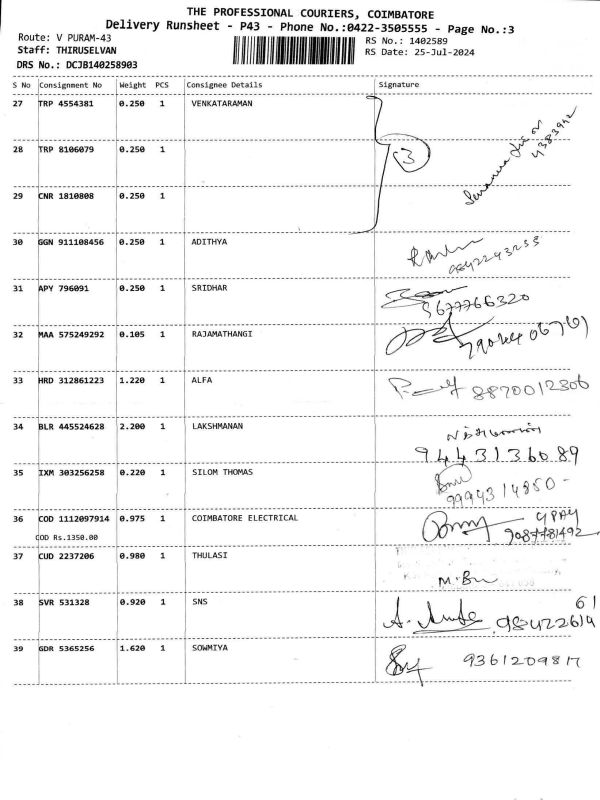 THE PROFESSIONAL COURIERS, COIMBATORE
Delivery Runsheet - P43 - Phone No.:0422-3505555 - Page No.:3
Route: V PURAM-43 RS No.: 1402589
Staff: THIRUSELVAN RS Date: 25-Jul-2024
DRS No.: DCJB140258903
S No Consignment No Weight PCS Consignee Details Signature
27 TRP 4554381 0.250 1 VENKATARAMAN
28 TRP 8106079 0.250 1 3
29 CNR 1810808 0.250 1
30 GGN 911108456 0.250 1 ADITHYA
9842243233
31 APY 796091 0.250 1 SRIDHAR
9677766320
32 MAA 575249292 0.105 1 RAJAMATHANGI
33 HRD 312861223 1.220 1 ALFA 8870012306
34 BLR 445524628 2.200 1 LAKSHMANAN
9443136089
35 IXM 303256258 0.220 1 SILOM THOMAS
9994314850-
36 COD 1112097914 0.975 1 COIMBATORE ELECTRICAL GPAY
COD Rs.1350.00 9087781492
37 CUD 2237206 0.980 1 THULASI
38 SVR 531328 0.920 1 SNS 61
98422614
39 GDR 5365256 1.620 1 SOWMIYA 9361209817